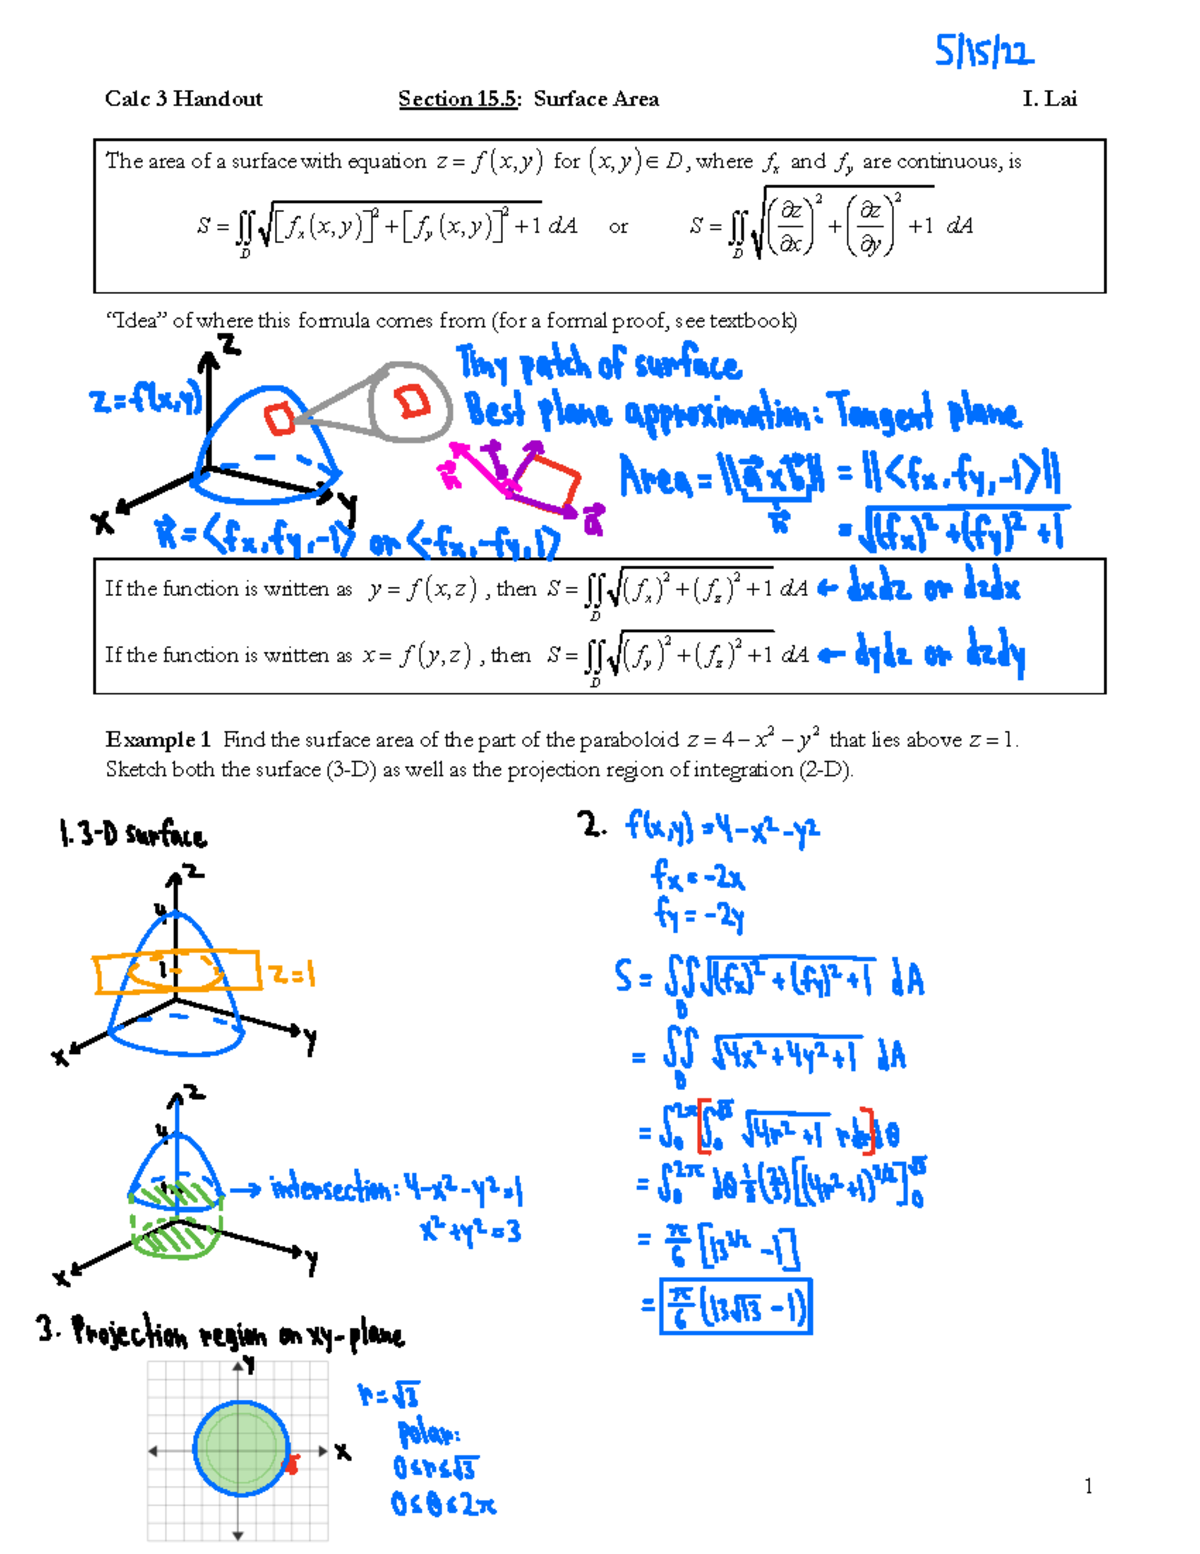 5/15/22
Calc 3 Handout Section 15.5: Surface Area I. Lai
The area of a surface with equation z = f(x,y) for (x,y) ∈ D, where fₓ and f_y are continuous, is
S = ∬_D √([fₓ(x,y)]² + [f_y(x,y)]² + 1) dA or S = ∬_D √((∂z/∂x)² + (∂z/∂y)² + 1) dA
“Idea” of where this formula comes from (for a formal proof, see textbook)
z
Tiny patch of surface
z = f(x,y)
Best plane approximation: Tangent plane
Area = ||a⃗ x b⃗|| = ||<fx, fy, -1>||
n⃗
n⃗
a⃗
x
y
= √((fx)² + (fy)² + 1)
n⃗ = <fx, fy, -1> or <-fx, -fy, 1>
If the function is written as y = f(x,z), then S = ∬_D √((fₓ)² + (f_z)² + 1) dA ← dxdz or dzdx
If the function is written as x = f(y,z), then S = ∬_D √((f_y)² + (f_z)² + 1) dA ← dydz or dzdy
Example 1 Find the surface area of the part of the paraboloid z = 4 − x² − y² that lies above z = 1.
Sketch both the surface (3-D) as well as the projection region of integration (2-D).
1. 3-D surface
z
4
1
z=1
x
y
z
4
1
→ intersection: 4-x²-y²=1
x²+y²=3
x
y
2. f(x,y) = 4-x²-y²
fx = -2x
fy = -2y
S = ∬_D √((fx)² + (fy)² + 1) dA
= ∬_D √(4x² + 4y² + 1) dA
= ∫₀^2π [∫₀^√3 √(4r² + 1) r dr] dθ
= ∫₀^2π dθ 1/8 (2/3) [(4r²+1)^3/2]₀^√3
= π/6 [13^3/2 - 1]
= π/6 (13√13 - 1)
3. Projection region on xy-plane
y
x
√3
r = √3
polar:
0 ≤ r ≤ √3
0 ≤ θ ≤ 2π
1